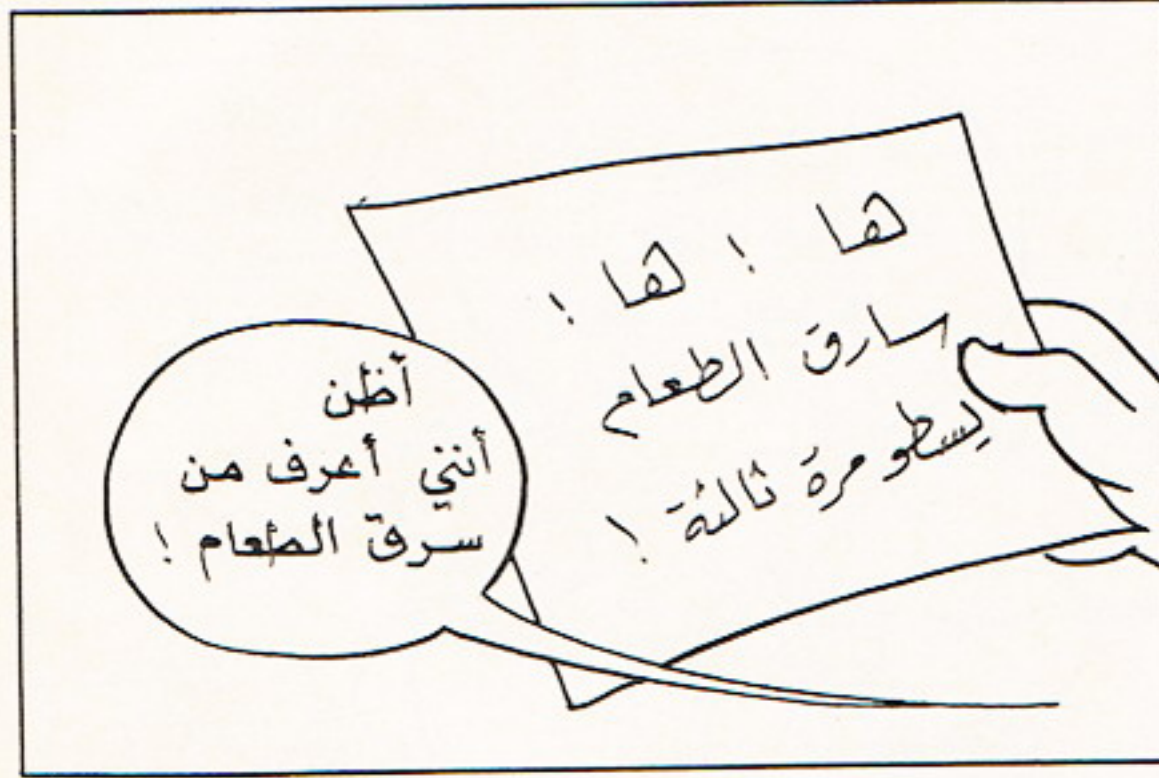 ها ! ها !
سارق الطعام
يسطو مرة ثالثة !
أظن
أنني أعرف من
سرق الطعام !